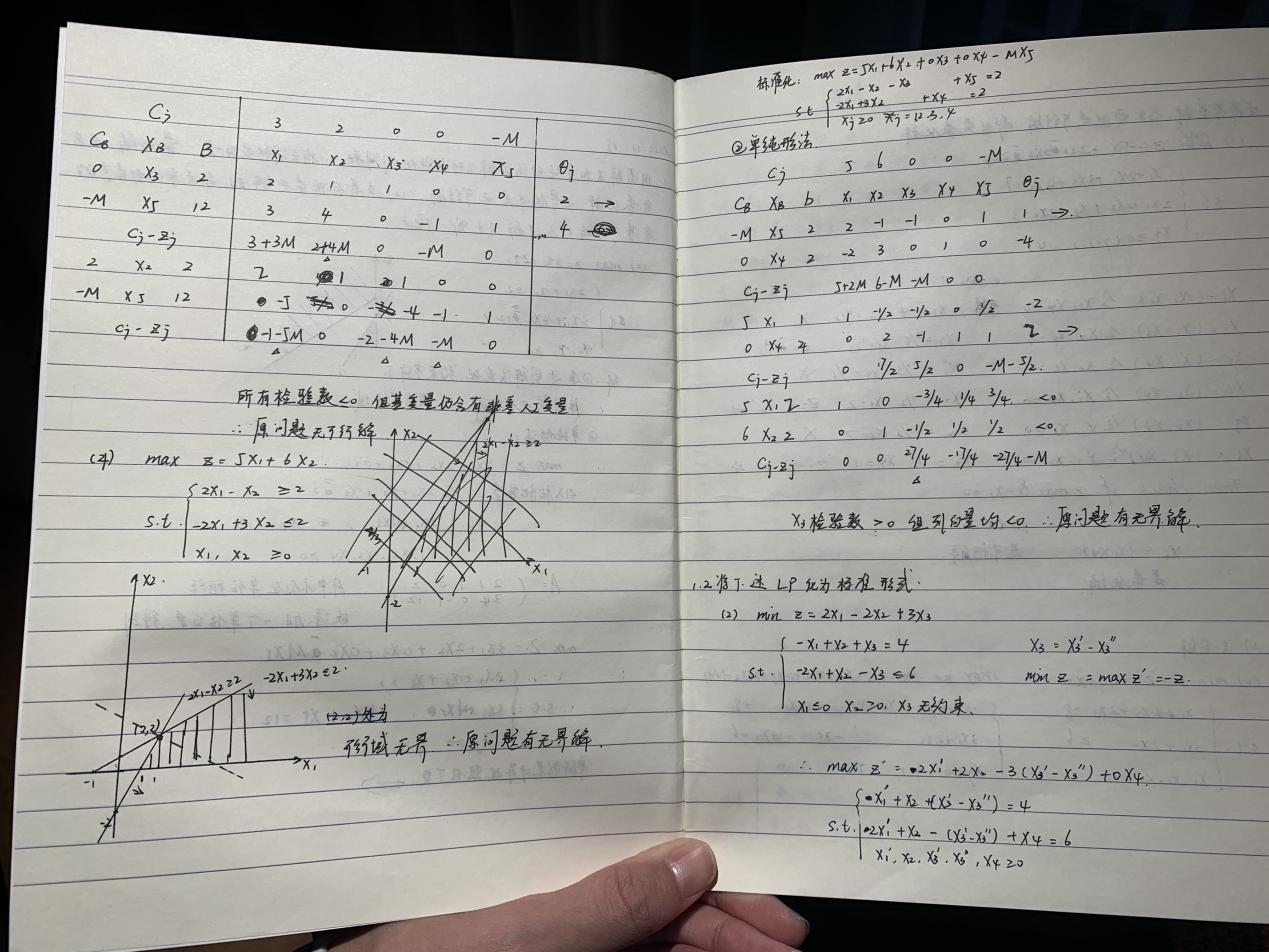 Cj 3 2 0 0 -M
CB XB B X1 X2 X3 X4 X5 θj
0 X3 2 2 1 1 0 0 2 →
-M X5 12 3 4 0 -1 1 4
Cj-Zj 3+3M 2+4M 0 -M 0
2 X2 2 2 1 1 0 0
-M X5 12 -5 0 -4 -1 1
Cj-Zj -1-5M 0 -2-4M -M 0
所有检验数<0 但基变量仍含有非零人工变量
∴ 原问题无可行解
(4) max z=5X1+6X2.
s.t. { 2X1-X2 ≥2
-2X1+3X2≤2
X1, X2 ≥0
X2
2X1-X2≥2
-1
X1
-2
X2.
2X1-X2≥2 -2X1+3X2≤2.
(2,2)
-1 1 X1
-2
可行域无界 ∴原问题有无界解.
标准化: max z=5X1+6X2+0X3+0X4-MX5
s.t { 2X1-X2-X3 +X5=2
-2X1+3X2 +X4 =2
Xj≥0 Xj=1.2.3.4
②单纯形法
Cj 5 6 0 0 -M
CB XB b X1 X2 X3 X4 X5 θj
-M X5 2 2 -1 -1 0 1 1 →.
0 X4 2 -2 3 0 1 0 -4
Cj-Zj 5+2M 6-M -M 0 0
5 X1 1 1 -1/2 -1/2 0 1/2 -2
0 X4 4 0 2 -1 1 1 2 →.
Cj-Zj 0 17/2 5/2 0 -M-5/2.
5 X1 2 1 0 -3/4 1/4 3/4. <0
6 X2 2 0 1 -1/2 1/2 1/2 <0.
Cj-Zj 0 0 27/4 -17/4 -27/4-M
X3检验数>0 但列向量均<0. ∴原问题有无界解.
1.2 将下述 LP 化为标准形式.
(2) min z=2X1-2X2+3X3
s.t. { -X1+X2+X3=4 X3=X3'-X3''
-2X1+X2-X3≤6 min z =max z'=-z.
X1≤0 X2≥0, X3无约束.
∴ max z'=2X1'+2X2-3(X3'-X3'')+0X4.
s.t. { X1'+X2+(X3'-X3'')=4
2X1'+X2-(X3'-X3'')+X4=6
X1', X2. X3'. X3'', X4≥0